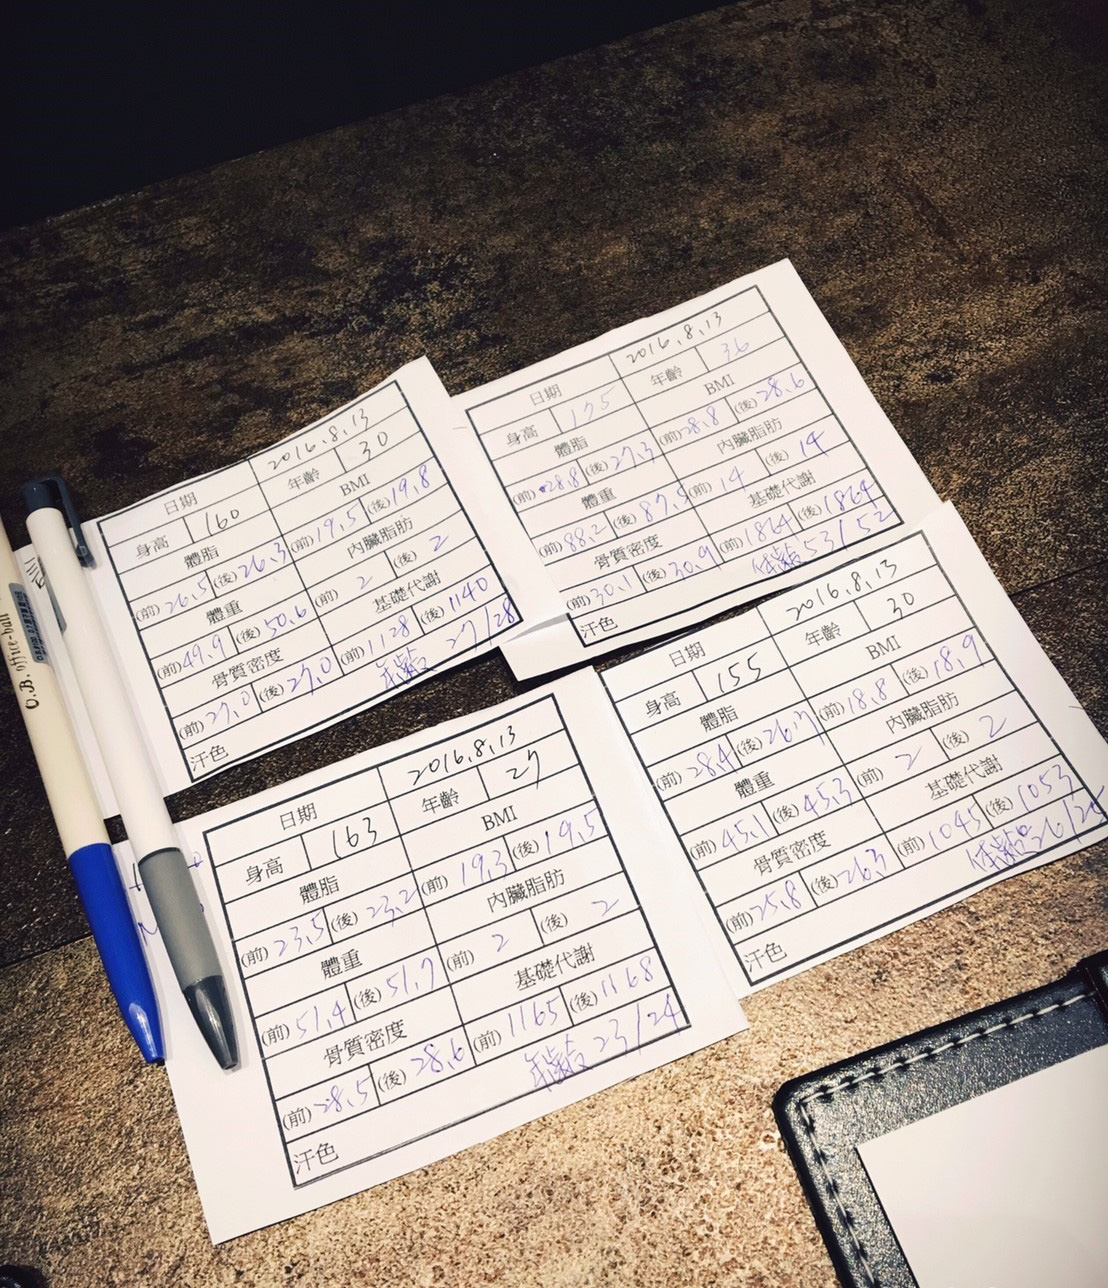 日期 2016.8.13
身高 160 年齡 30
體脂 BMI
(前)26.5 (後)26.3 (前)19.5 (後)19.8
體重 內臟脂肪
(前)49.9 (後)50.6 (前)2 (後)2
骨質密度 基礎代謝
(前)27.0 (後)27.0 (前)1128 (後)1140
汗色 年齡 27/28
日期 2016.8.13
身高 175 年齡 36
體脂 BMI
(前)28.8 (後)27.3 (前)28.8 (後)28.6
體重 內臟脂肪
(前)88.2 (後)87.5 (前)14 (後)14
骨質密度 基礎代謝
(前)30.1 (後)30.9 (前)1864 (後)1864
汗色 年齡 53/52
日期 2016.8.13
身高 163 年齡 27
體脂 BMI
(前)23.5 (後)23.2 (前)19.3 (後)19.5
體重 內臟脂肪
(前)51.4 (後)51.7 (前)2 (後)2
骨質密度 基礎代謝
(前)28.5 (後)28.6 (前)1165 (後)1168
汗色 年齡 23/24
日期 2016.8.13
身高 155 年齡 30
體脂 BMI
(前)28.4 (後)26.7 (前)18.8 (後)18.9
體重 內臟脂肪
(前)45.1 (後)45.3 (前)2 (後)2
骨質密度 基礎代謝
(前)25.8 (後)26.3 (前)1045 (後)1053
汗色 年齡 26/
O.B. office-ball